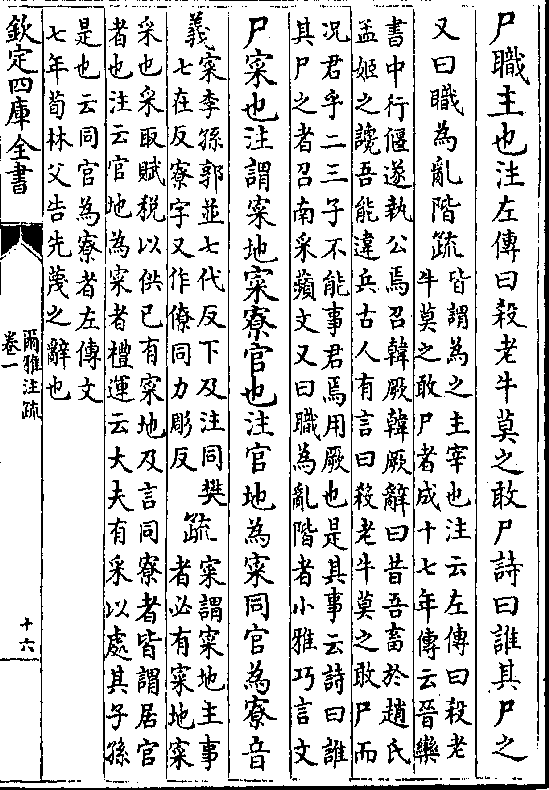 尸職主也注左傳曰殺老牛莫之敢尸詩曰誰其尸之
又曰職為亂階疏
皆謂為之主宰也注云左傳曰殺老
牛莫之敢尸者成十七年傳云晉欒
書中行偃遂執公焉召韓厥韓厥辭曰昔吾畜於趙氏
孟姬之讒吾能違兵古人有言曰殺老牛莫之敢尸而
况君乎二三子不能事君焉用厥也是其事云詩曰誰
其尸之者召南采蘋文又曰職為亂階者小雅巧言文
尸寀也注謂寀地寀寮官也注官地為寀同官為寮音
義
寀李孫郭並七代反下及注同樊
七在反寮字又作僚同力彫反
疏
寀謂寀地主事
者必有寀地寀
采也采取賦稅以供已有寀地及言同寮者皆謂居官
者也注云官地為寀者禮運云大夫有采以處其子孫
是也云同官為寮者左傳文
七年荀林父告先蔑之辭也
欽定四庫全書
爾雅注疏
卷一
十六